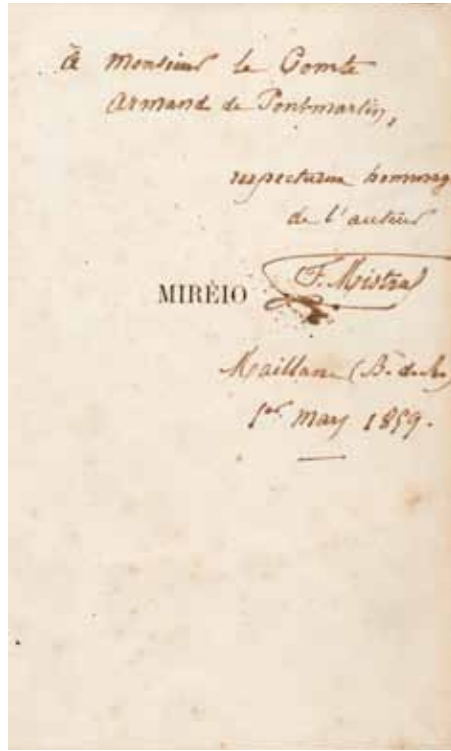 à Monsieur le Comte
Armand de Pontmartin,
respectueux hommage
de l'auteur
MIRÈIO F. Mistral
Maillane (B. d. R.)
1er May 1859.